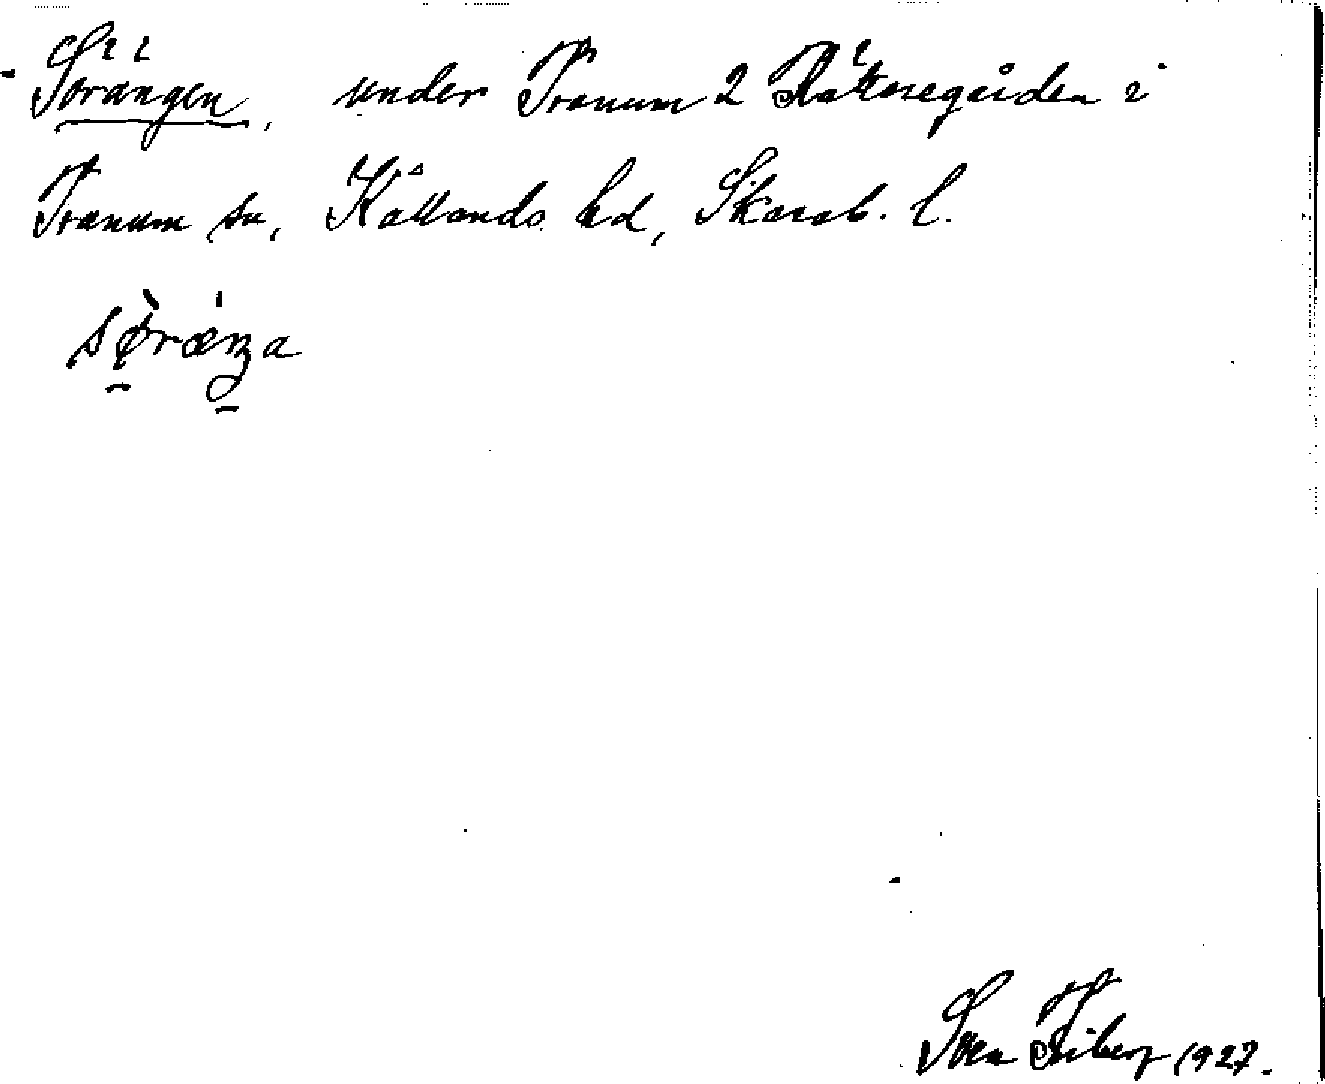 Sörängen, under Tranum 2 Råknegården i
Tranum sn, Kållands hd, Skarab. l.
sǿrǽŋa
Sven Friberg 1927.